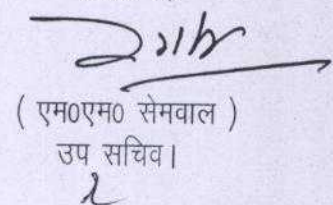 ( एम0एम0 सेमवाल )
उप सचिव।